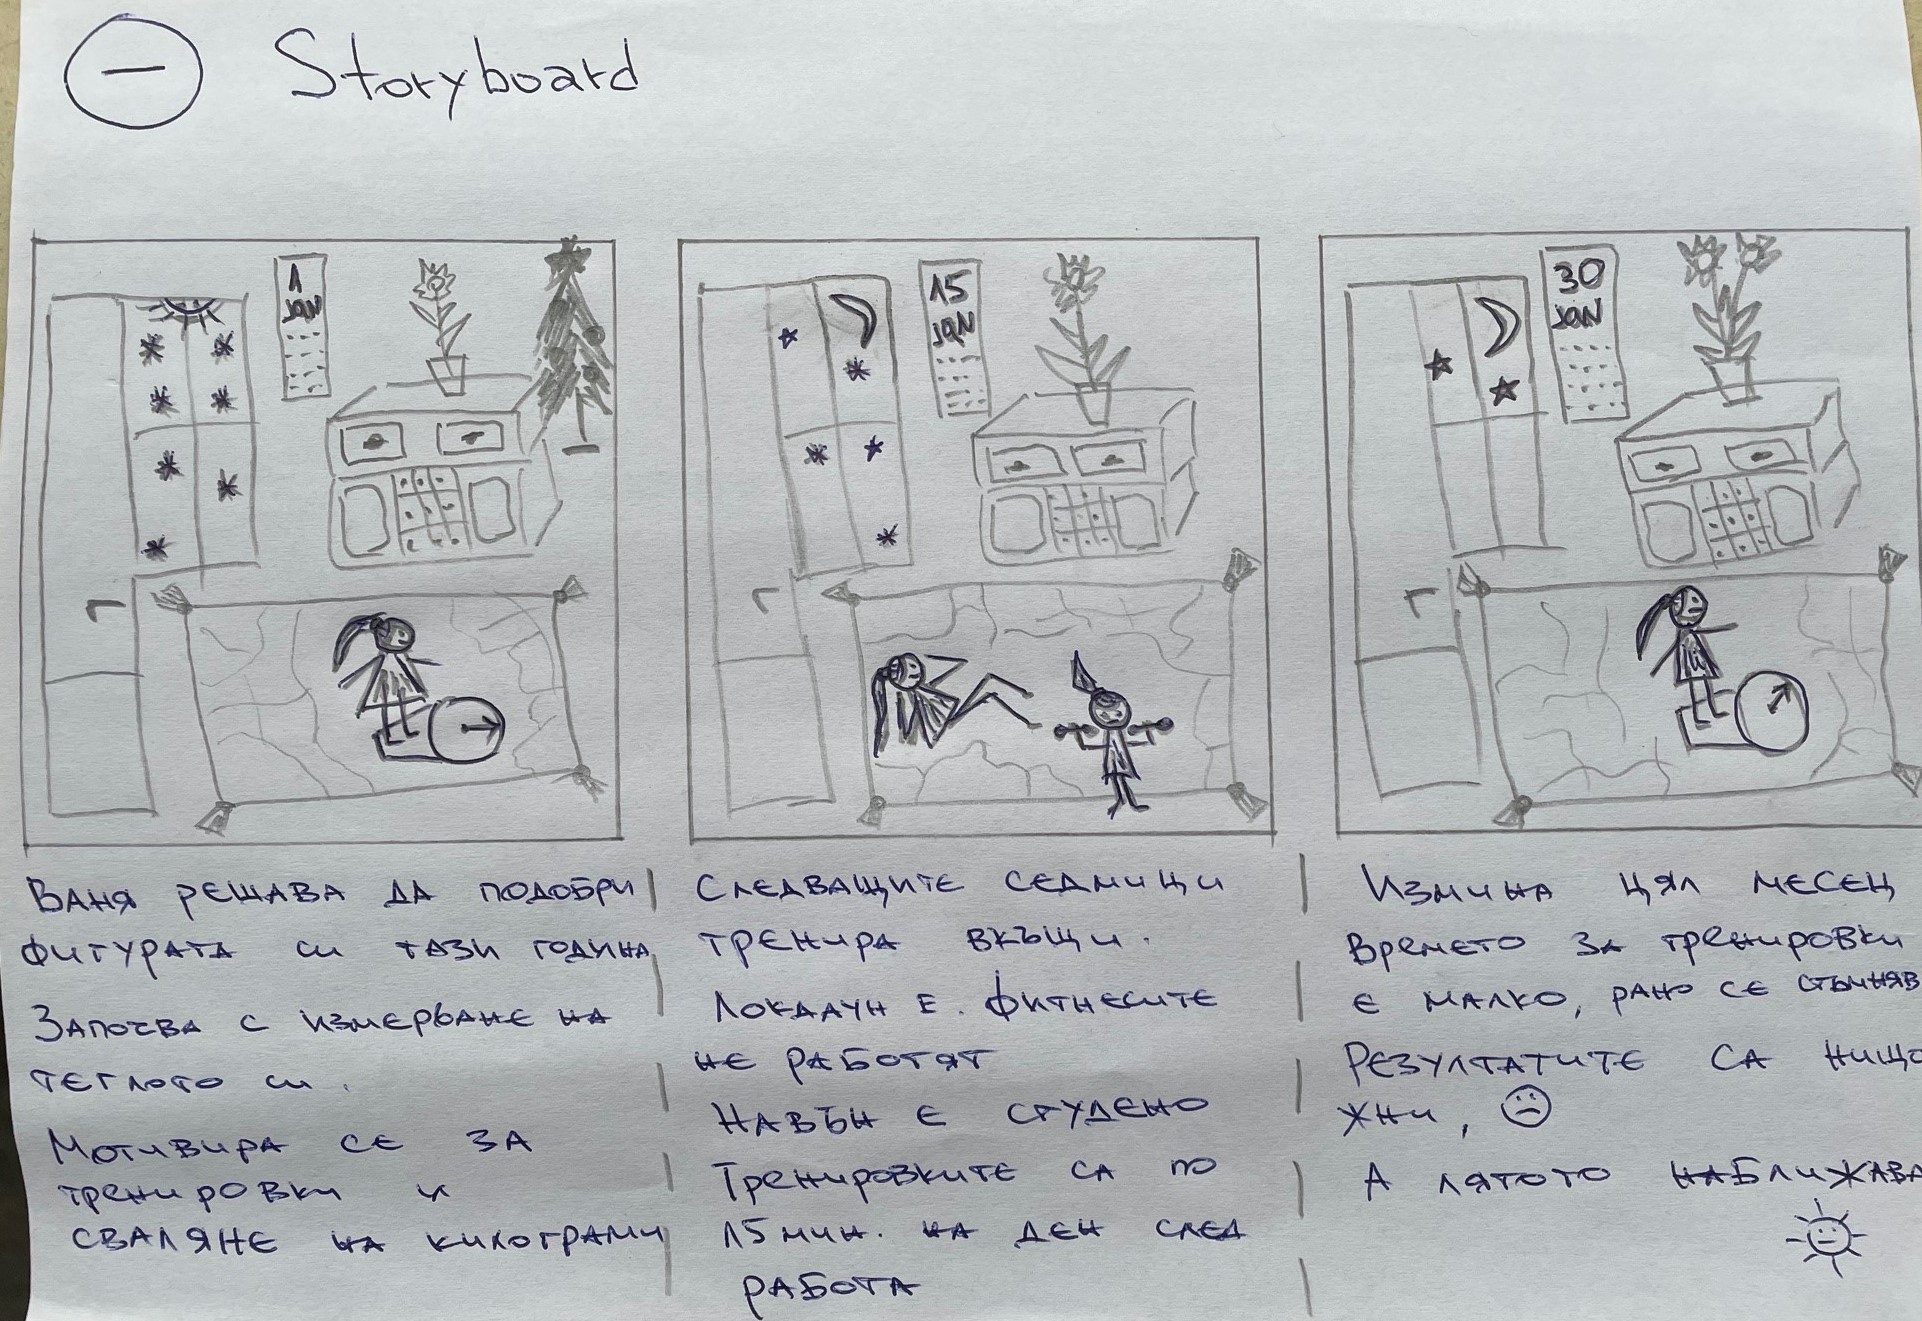 Storyboard
1
JAN
15
JAN
30
JAN
Ваня решава да подобри
фигурата си тази година
Започва с измерване на
теглото си.
Мотивира се за
тренировки и
сваляне на килограми
Следващите седмици
тренира вкъщи.
Локдаун е. Фитнесите
не работят
Навън е студено
Тренировките са по
15 мин. на ден след
работа
Измина цял месец
Времето за тренировки
е малко, рано се стъмняв
Резултатите са нищо
жни,
А лятото наближава